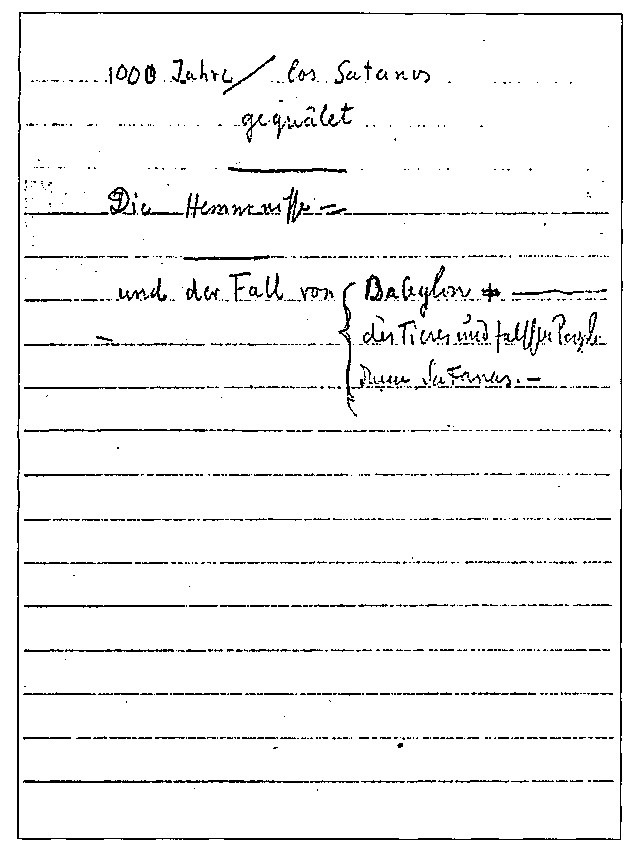 1000 Jahre / los Satanas
gequälet
Die Hemmnisse =
und der Fall von { Babylon +
des Tieres und falschen
Satanas. –